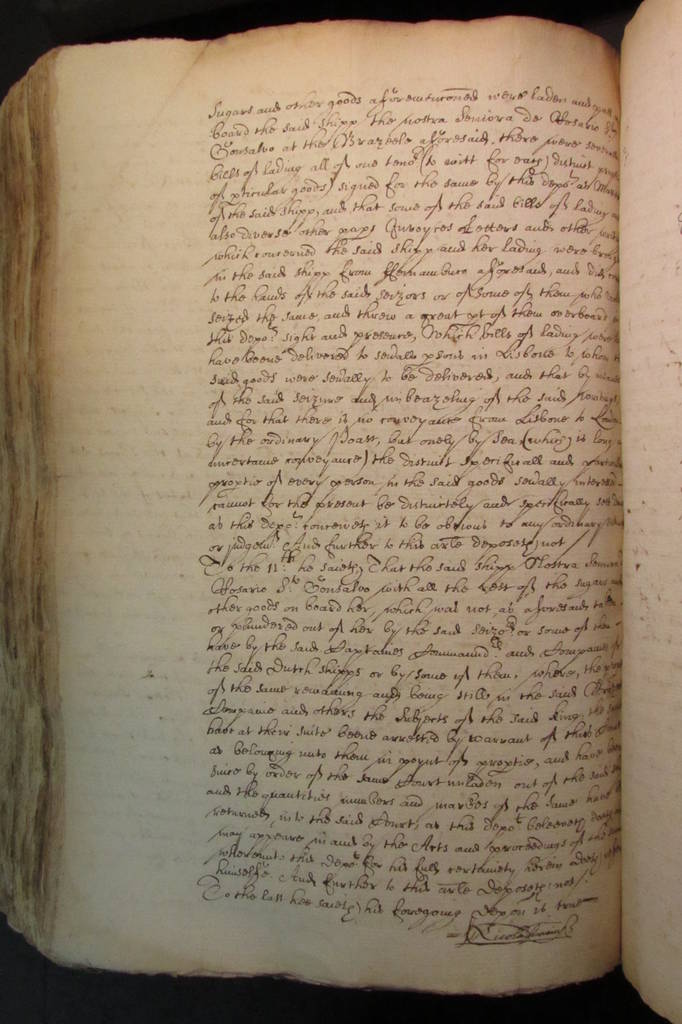 Sugars and other goods aforementioned were laden and
board the said shipp the nostra Seniora de Rosario
Gonsalvo at the Brazeele aforesaid, there were
bills of lading all of one teno:r (to witt for each) distinct
of pticular goods) signed for the same by this depo:t as
of the said shipp, and that some of the said bills of lading
also diverse other paps Invoyces Letters and other
which concerned the said shipp and her lading were
in the said shipp from Fernambuco aforesaid, and did
to the hands of the said seizors or of some of them who
seized the same and threw a great pt of them overboard
this depo:ts sight and presence, Which bills of lading were
have beene delivered to severall psons in Lisbone to whom
said goods were sevally to be delivered, and that by
of the said seizure and imbeazeling of the said
and for that there is no conveyance from Lisbone to
by the ordinary Poast, but onely by Sea (which is long
uncertaine conveyance) the distinct specificall and
proptie of every person in the said goods sevally
cannot for the present be distinctely and specifically
as this depo:t conceives it to be obvious to any ordinary
or judgem:t And further to this arle deposeth not
To the 11:th he saieth, That the said shipp Nostra
Rosario S:to Gonsalvo with all the rest of the sugars and
other goods on board her, which was not as aforesaid
or plundered out of her by the said seizo:rs or some of them
have by the said Captaines Command:rs and Companies of
the said Dutch shipps or by some of them, where, the
of the same remaining and being still in the said
Companie and others the Subjects of the said King,
have at their suite beene arrested by warrant of this
as belonging unto them in poynt of proptie, and have
since by order of the same Court unladen out of the said
and the quantities numbers and markes of the same have
returned into the said Court, as this depo:t beleeveth
may appeare in and by the Acts and proceedings of the
whereunto this depo:t for his full certainety herein
himselfe. And further to this arle deposeth not.
To the last hee saieth, his foregoing depon is true